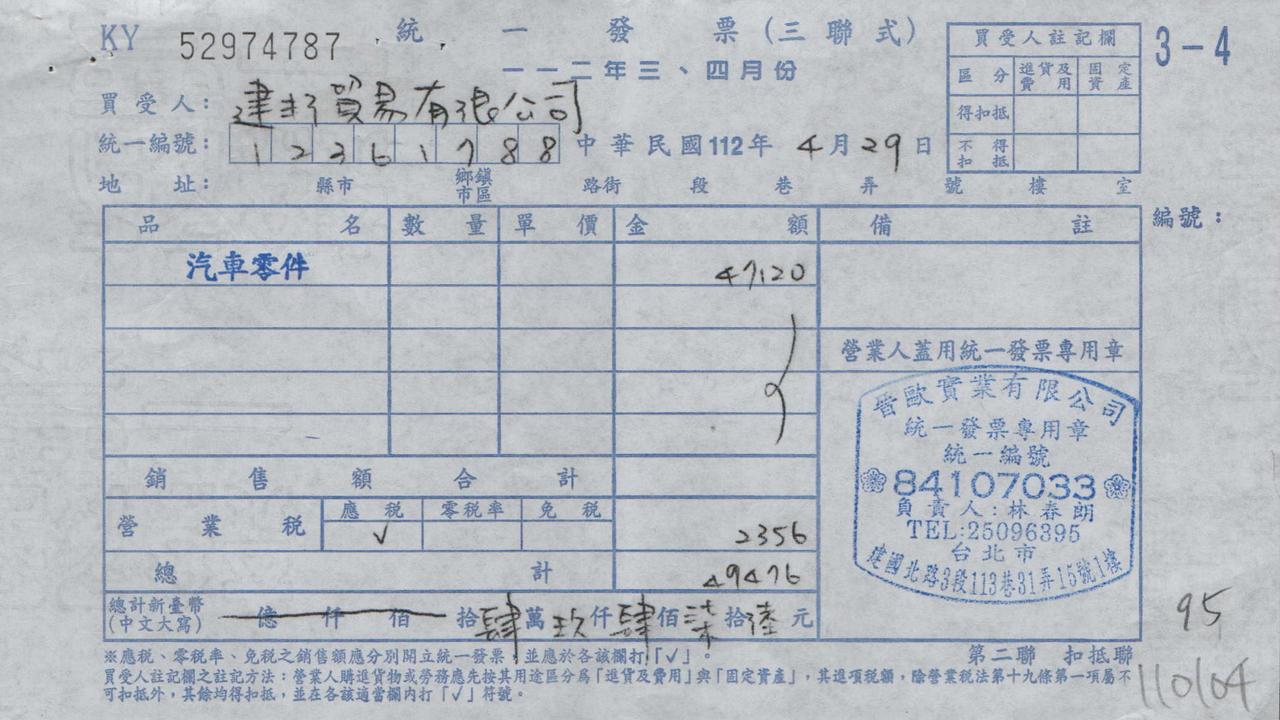 KY 52974787 統一發票(三聯式) 3-4
一一二年三、四月份
買受人註記欄
區分 進貨及費用 固定資產
得扣抵
不得扣抵
買受人: 建 貿易有限公司
統一編號: 12361788 中華民國112年 4月29日
地址: 縣市 鄉鎮市區 路街 段 巷 弄 號 樓 室
編號:
品名 數量 單價 金額 備註
汽車零件 47120
營業人蓋用統一發票專用章
晉歐實業有限公司
統一發票專用章
統一編號
84107033
負責人:林春朗
TEL:25096395
台北市
建國北路3段113巷31弄15號1樓
銷售額合計
營業稅 應稅 零稅率 免稅
√ 2356
總計 49476
總計新臺幣(中文大寫) 億 仟 佰 拾肆萬玖仟肆佰柒拾陸元
95
※應稅、零稅率、免稅之銷售額應分別開立統一發票,並應於各該欄打「√」。 第二聯 扣抵聯
買受人註記欄之註記方法:營業人購進貨物或勞務應先按其用途區分為「進貨及費用」與「固定資產」,其進項稅額,除營業稅法第十九條第一項屬不
可扣抵外,其餘均得扣抵,並在各該適當欄內打「√」符號。
110104